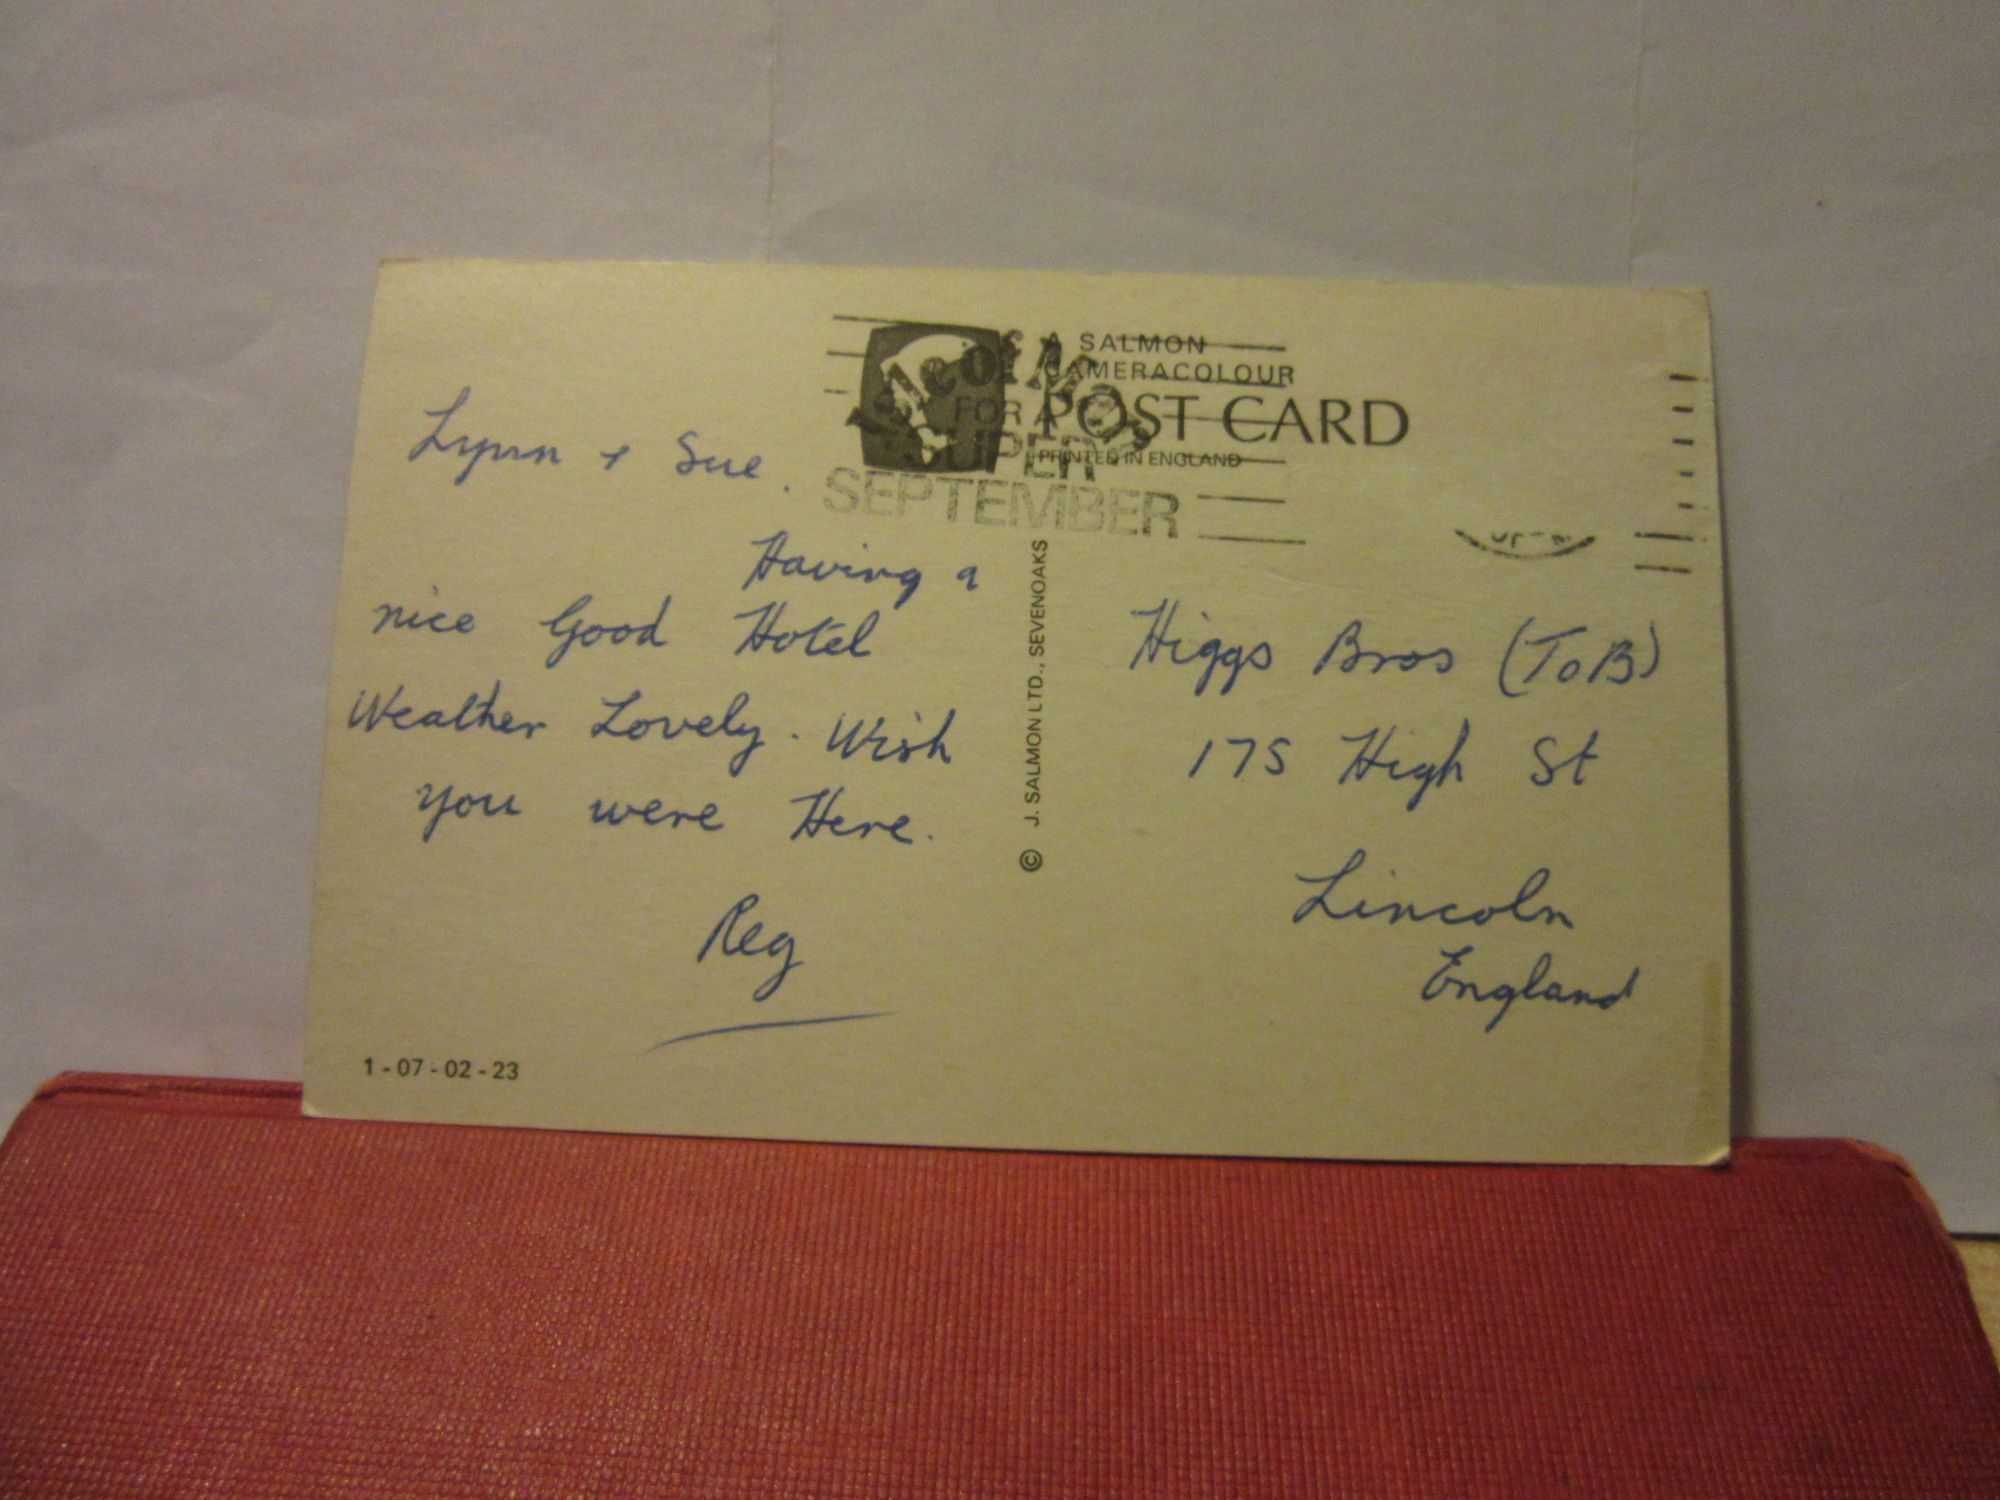 A SALMON
CAMERACOLOUR
POST CARD
PRINTED IN ENGLAND
Isle of Man
FOR A
SUPER
SEPTEMBER
Lynn + Sue.
Having a
nice Good Hotel
Weather Lovely. Wish
you were Here.
Reg
1-07-02-23
© J. SALMON LTD., SEVENOAKS
Higgs Bros (ToB)
175 High St
Lincoln
England